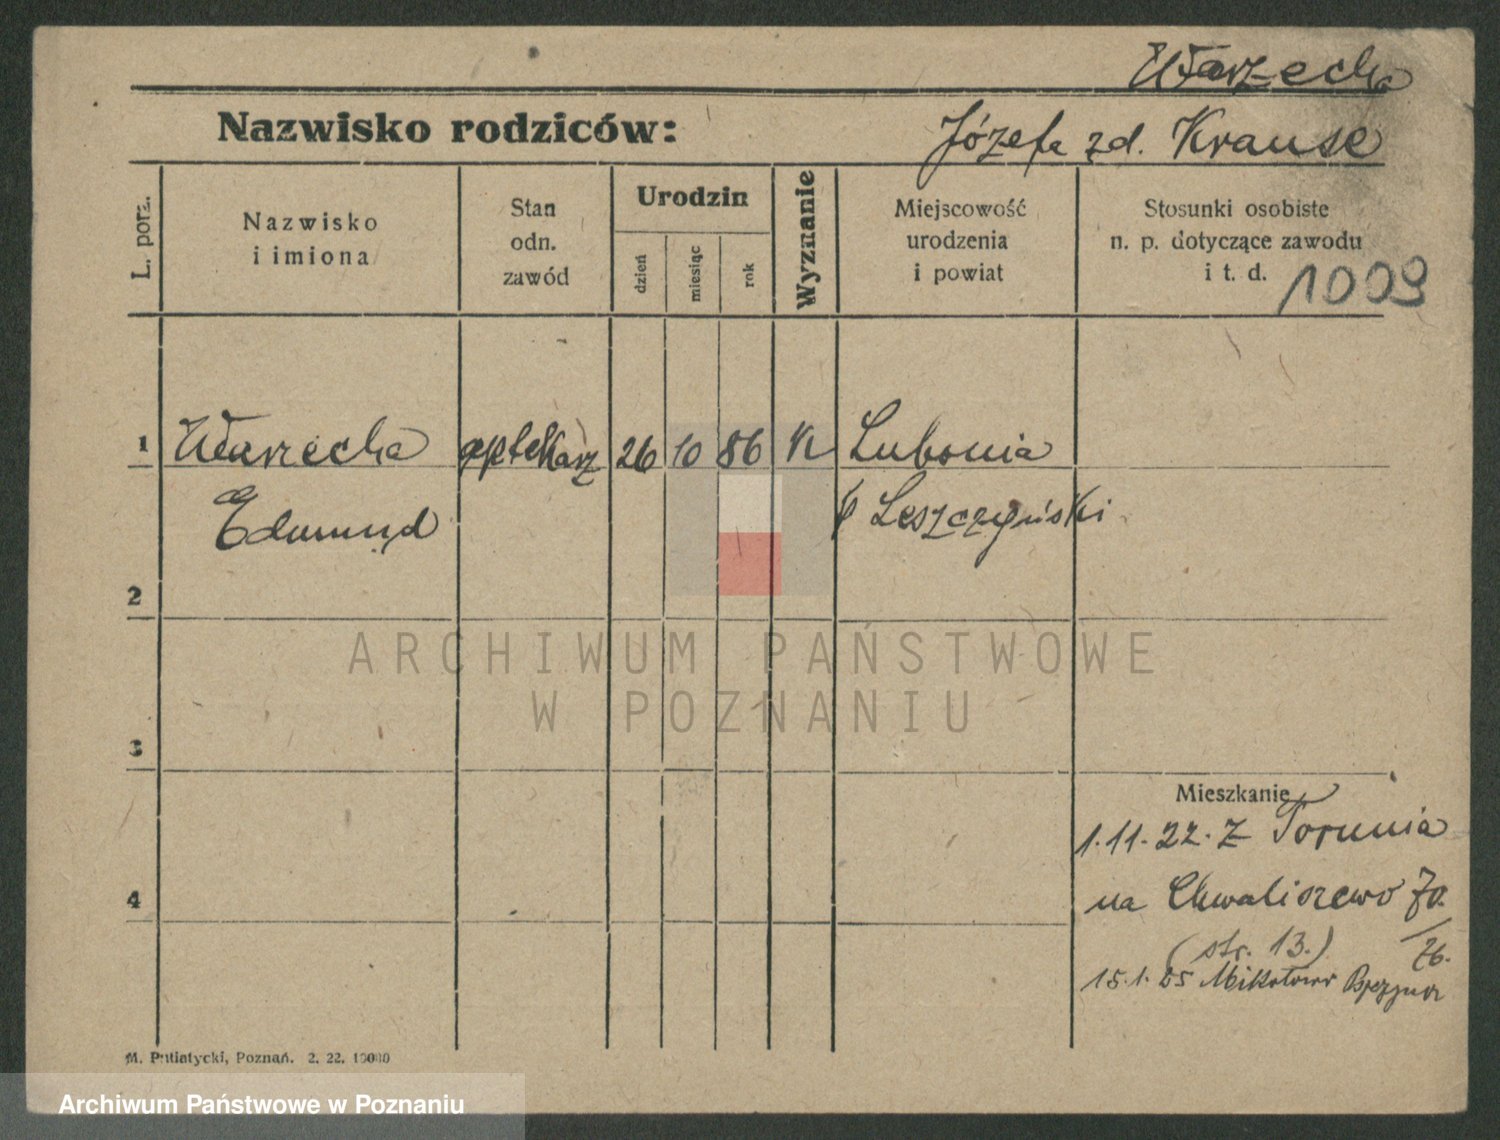 Warzecha
Nazwisko rodziców:
Józefa zd. Krause
L. porz.
Nazwisko
i imiona
Stan
odn.
zawód
Urodzin
dzień
miesiąc
rok
Wyznanie
Miejscowość
urodzenia
i powiat
Stosunki osobiste
n. p. dotyczące zawodu
i t. d.
1009
1
Warzecha aptekarz 26 10 86 K Lubonia
Edmund
Leszczyński
2
ARCHIWUM PAŃSTWOWE
W POZNANIU
3
Mieszkanie
1.11.22. Z Torunia
4
na Chwaliszewo 70.
(str. 13.)
15.1.25 Mikołowo
M. Putiatycki, Poznań. 2. 22. 10000
Archiwum Państwowe w Poznaniu